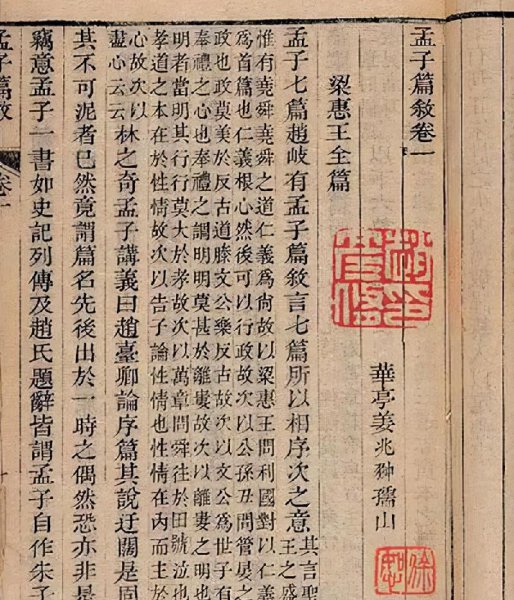 孟子篇敘卷一
華亭姜兆翀孺山
梁惠王全篇
孟子七篇趙岐有孟子篇敘言七篇所以相序次之意其言聖
王之盛
惟有堯舜堯舜之道仁義爲尚故以梁惠王問利國對以仁義
爲首篇也仁義根心然後可以行政故次以公孫丑問管晏之
政也政莫美於反古道滕文公樂反古故次以文公爲世子有
奉禮之心也奉禮之謂明明莫甚於離婁故次以離婁之明也
明者當明其行行莫大於孝故次以萬章問舜往於田號泣也
孝道之本在於性情故次以告子論性情也性情在內而主於
心故次以
盡心云云
林之奇孟子講義曰趙臺卿論序篇其說迂闊是固
其不可泥者已然竟謂篇名先後出於一時之偶然恐亦非是
竊意孟子一書如史記列傳及趙氏題辭皆謂孟子自作朱子
孟子篇敘
卷一
徐恕